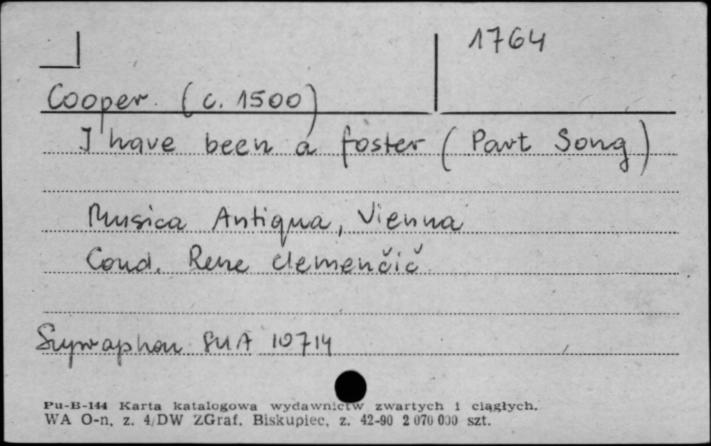 1764
Cooper. (c. 1500)
I have been a foster (Part Song)
Musica Antiqua, Vienna
Cond. Rene Clemenčič
Supraphon SUA 10714
Pu-B-144 Karta katalogowa wydawnictw zwartych i ciągłych.
WA O-n, z. 4/DW ZGraf. Biskupiec, z. 42-90 2 070 000 szt.